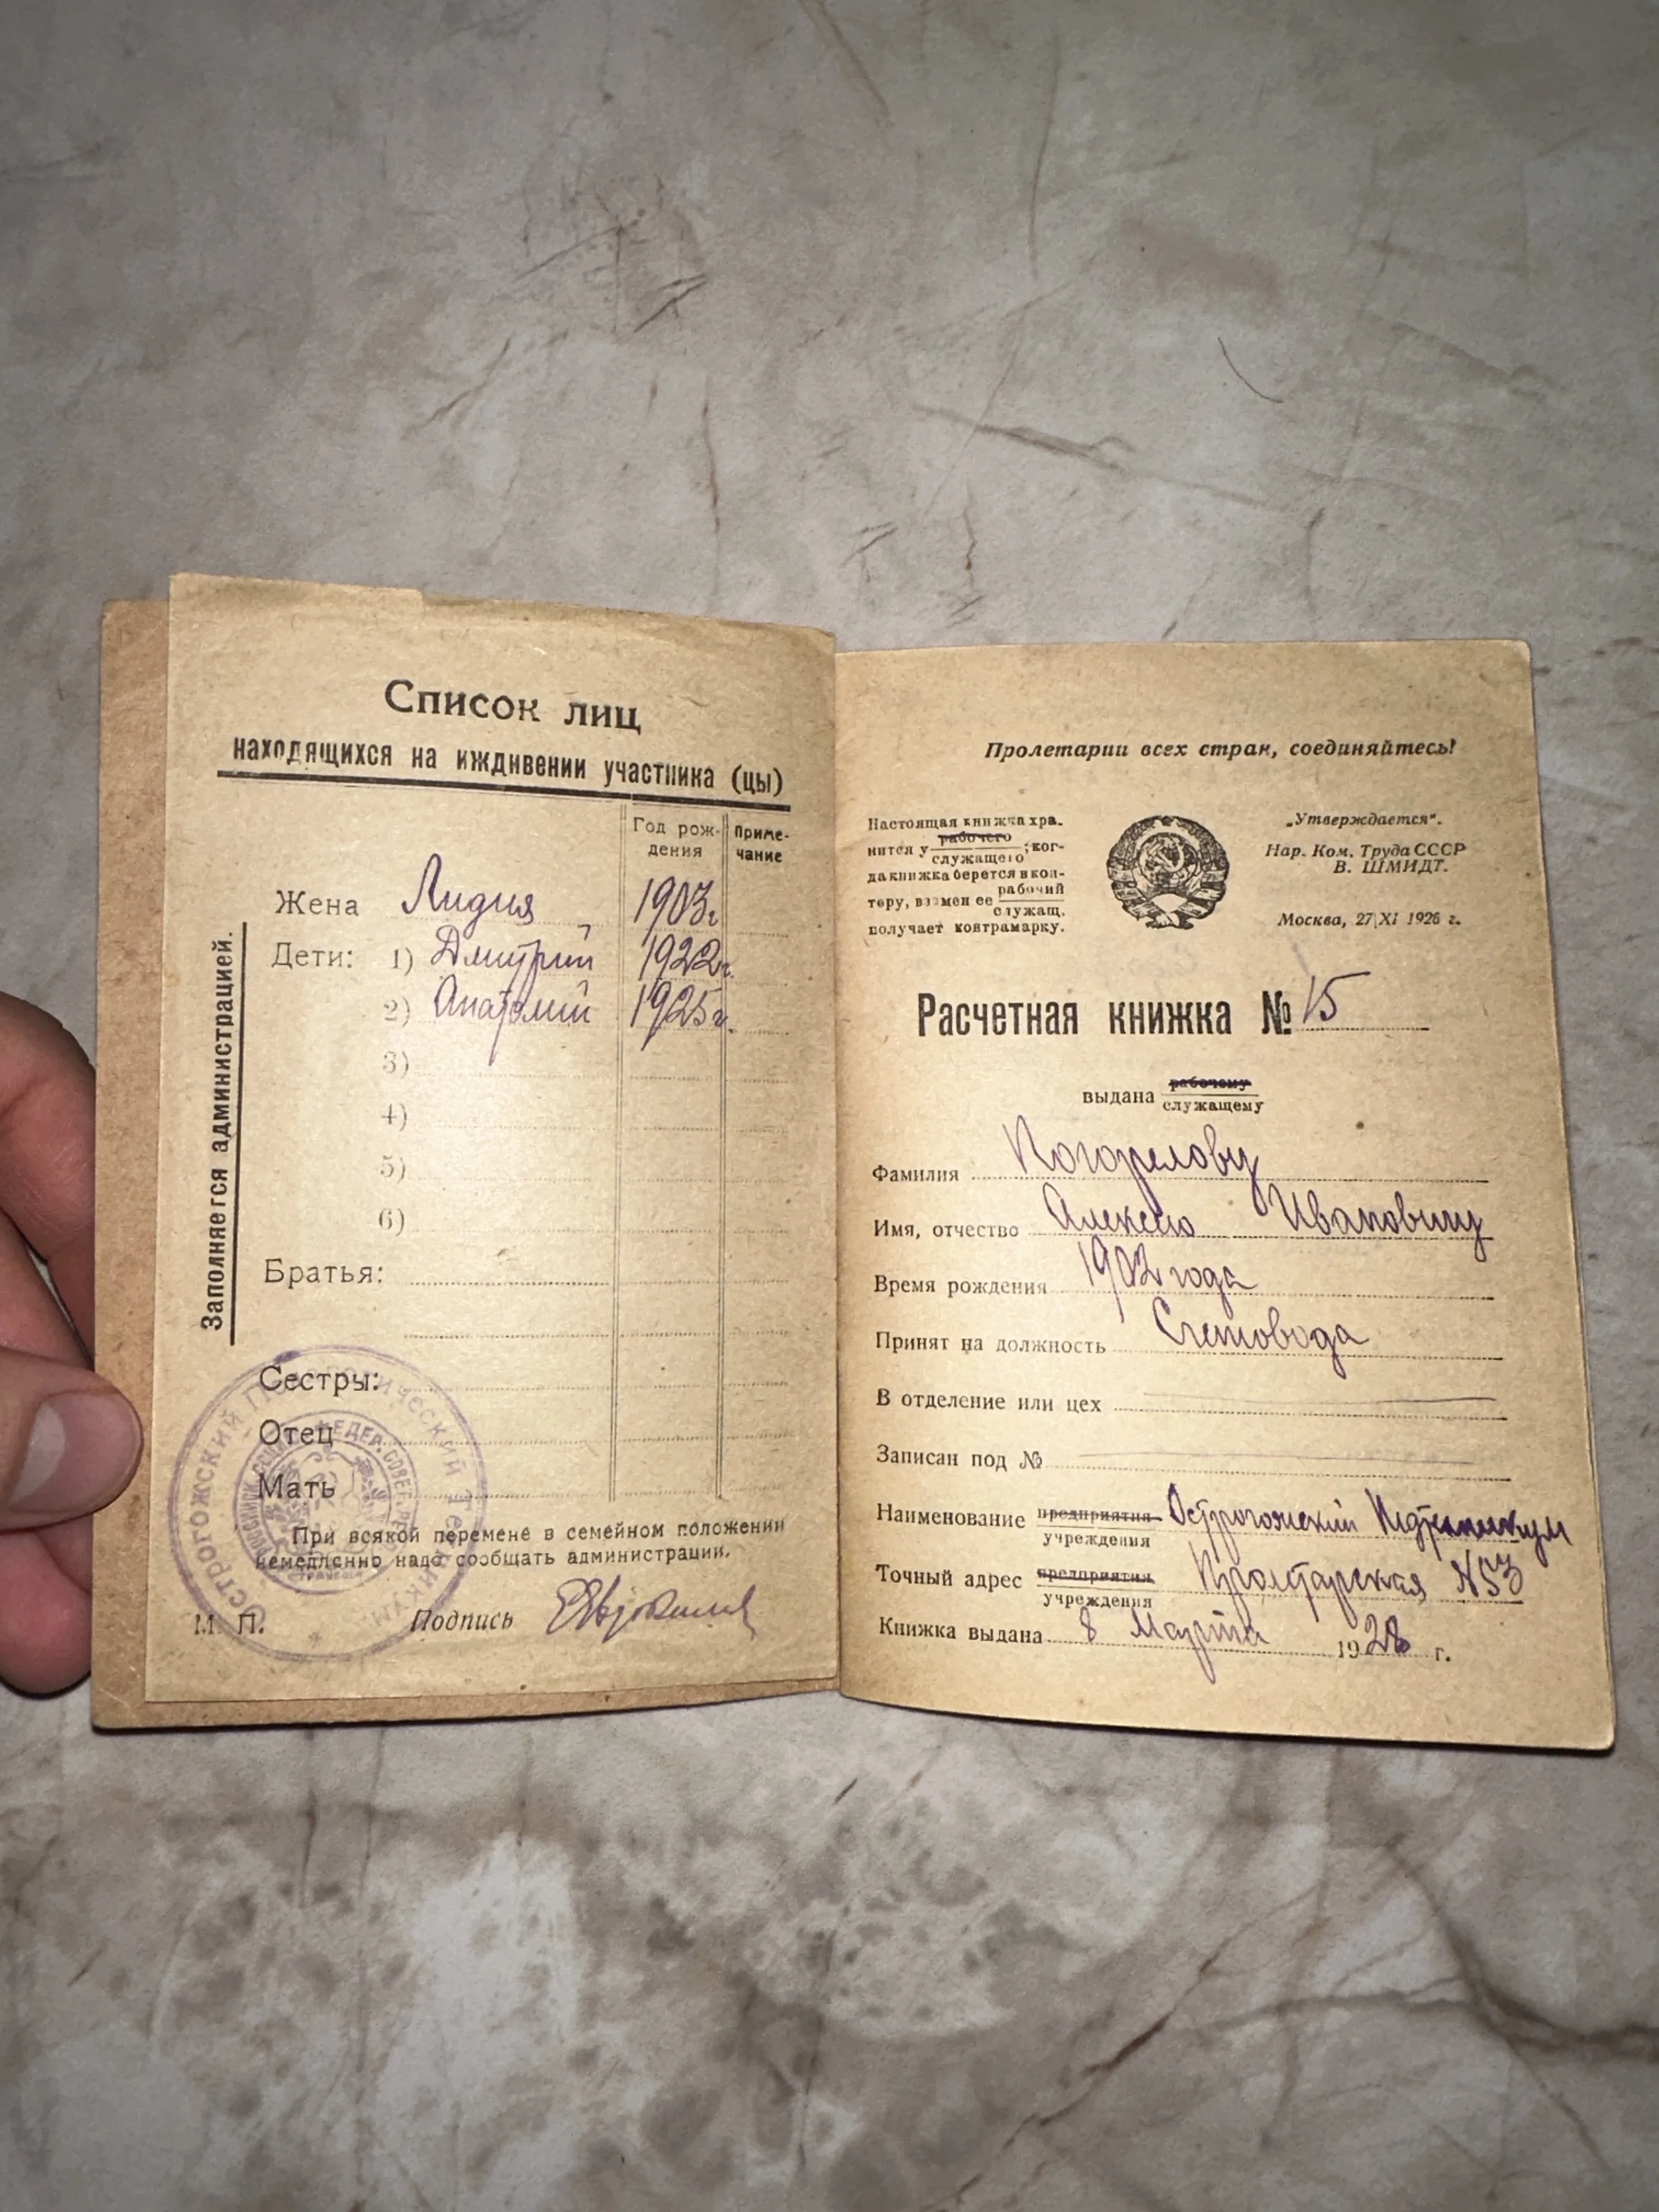 Список лиц
находящихся на иждивении участника (цы)
Год рож-
дения
Приме-
чание
Жена Лидия 1903г
Дети: 1) Дмитрий 1922г.
2) Анатолий 1925г.
3)
4)
5)
6)
Братья:
Сестры:
Отец
Мать
При всякой перемене в семейном положении
немедленно надо сообщать администрации.
М. П. Подпись
Заполняется администрацией.
Острогожский Педагогический Техникум
Пролетарии всех стран, соединяйтесь!
Настоящая книжка хра-
рабочего
нится у ;ког-
служащего
да книжка берется в кон-
рабочий
тору, взамен ее
служащ.
получает контрамарку.
„Утверждается".
Нар. Ком. Труда СССР
В. ШМИДТ.
Москва, 27|XI 1926 г.
Расчетная книжка № 15
рабочему
выдана
служащему
Фамилия Погорелову
Имя, отчество Алексею Ивановичу
Время рождения 1902 года
Принят на должность Счетовода
В отделение или цех
Записан под №
Наименование предприятия Острогожский Педтехникум
учреждения
Точный адрес предприятия Пролетарская №53
учреждения
Книжка выдана 8 Марта 1928 г.